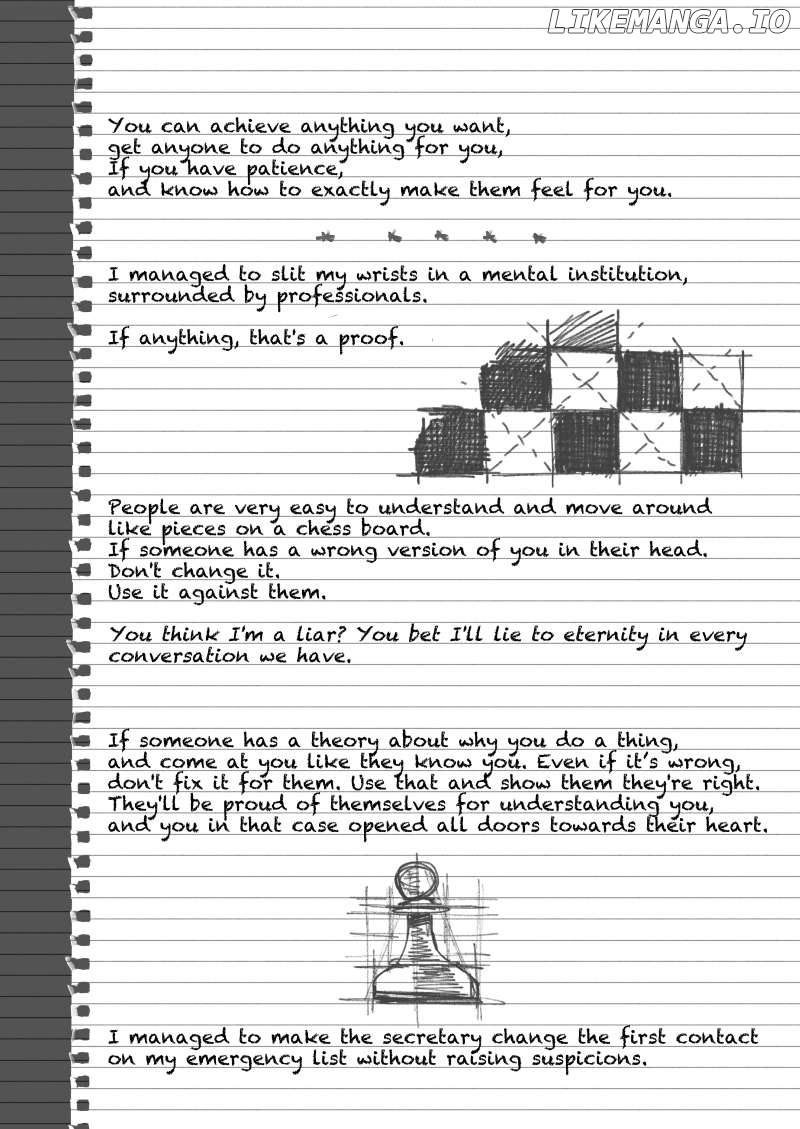 LIKEMANGA.IO
You can achieve anything you want,
get anyone to do anything for you,
If you have patience,
and know how to exactly make them feel for you.
I managed to slit my wrists in a mental institution,
surrounded by professionals.
If anything, that's a proof.
People are very easy to understand and move around
like pieces on a chess board.
If someone has a wrong version of you in their head.
Don't change it.
Use it against them.
You think I'm a liar? You bet I'll lie to eternity in every
conversation we have.
If someone has a theory about why you do a thing,
and come at you like they know you. Even if it's wrong,
don't fix it for them. Use that and show them they're right.
They'll be proud of themselves for understanding you,
and you in that case opened all doors towards their heart.
I managed to make the secretary change the first contact
on my emergency list without raising suspicions.